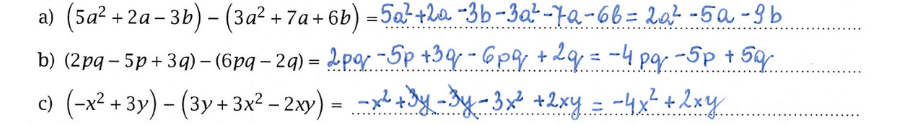 a) (5a² + 2a – 3b) – (3a² + 7a + 6b) = 5a²+2a-3b-3a²-7a-6b = 2a²-5a-9b
b) (2pq – 5p + 3q) – (6pq – 2q) = 2pq-5p+3q-6pq+2q = -4pq-5p+5q
c) (–x² + 3y) – (3y + 3x² – 2xy) = -x²+3y-3y-3x²+2xy = -4x²+2xy